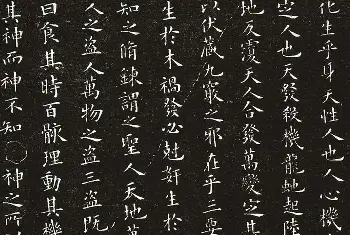 化生乎身天性人也人心機
定人也天發殺機龍虵起陸
地反覆天人合發萬變定其
以伏藏九竅之邪在乎三要
生於木禍發必尅姧生於
知之脩鍊謂之聖人天地萬
人之盜人萬物之盜三盜既
曰食其時百骸理動其機
其神而神不知〇神之所